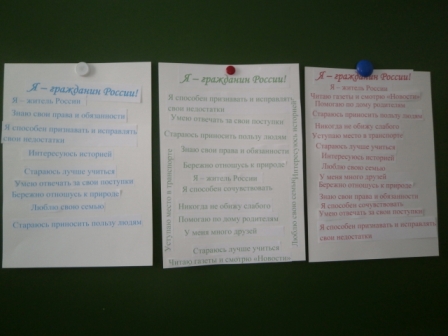 Я – гражданин России!
Я – житель России
Знаю свои права и обязанности
Я способен признавать и исправлять
свои недостатки
Интересуюсь историей
Стараюсь лучше учиться
Умею отвечать за свои поступки
Бережно отношусь к природе!
Люблю свою семью
Стараюсь приносить пользу людям
Я – гражданин России!
Я способен признавать и исправлять
свои недостатки
Умею отвечать за свои поступки
Стараюсь приносить пользу людям
Знаю свои права и обязанности
Бережно отношусь к природе!
Я – житель России
Я способен сочувствовать
Никогда не обижу слабого
Помогаю по дому родителям
У меня много друзей
Стараюсь лучше учиться
Читаю газеты и смотрю «Новости»
Уступаю место в транспорте
Люблю свою семью
Интересуюсь историей
Я – гражданин России!
Я – житель России
Читаю газеты и смотрю «Новости»
Помогаю по дому родителям
Стараюсь приносить пользу людям
Никогда не обижу слабого
Уступаю место в транспорте
Стараюсь лучше учиться
Интересуюсь историей
Люблю свою семью
У меня много друзей
Бережно отношусь к природе!
Знаю свои права и обязанности
Я способен сочувствовать
Умею отвечать за свои поступки
Я способен признавать и исправлять
свои недостатки